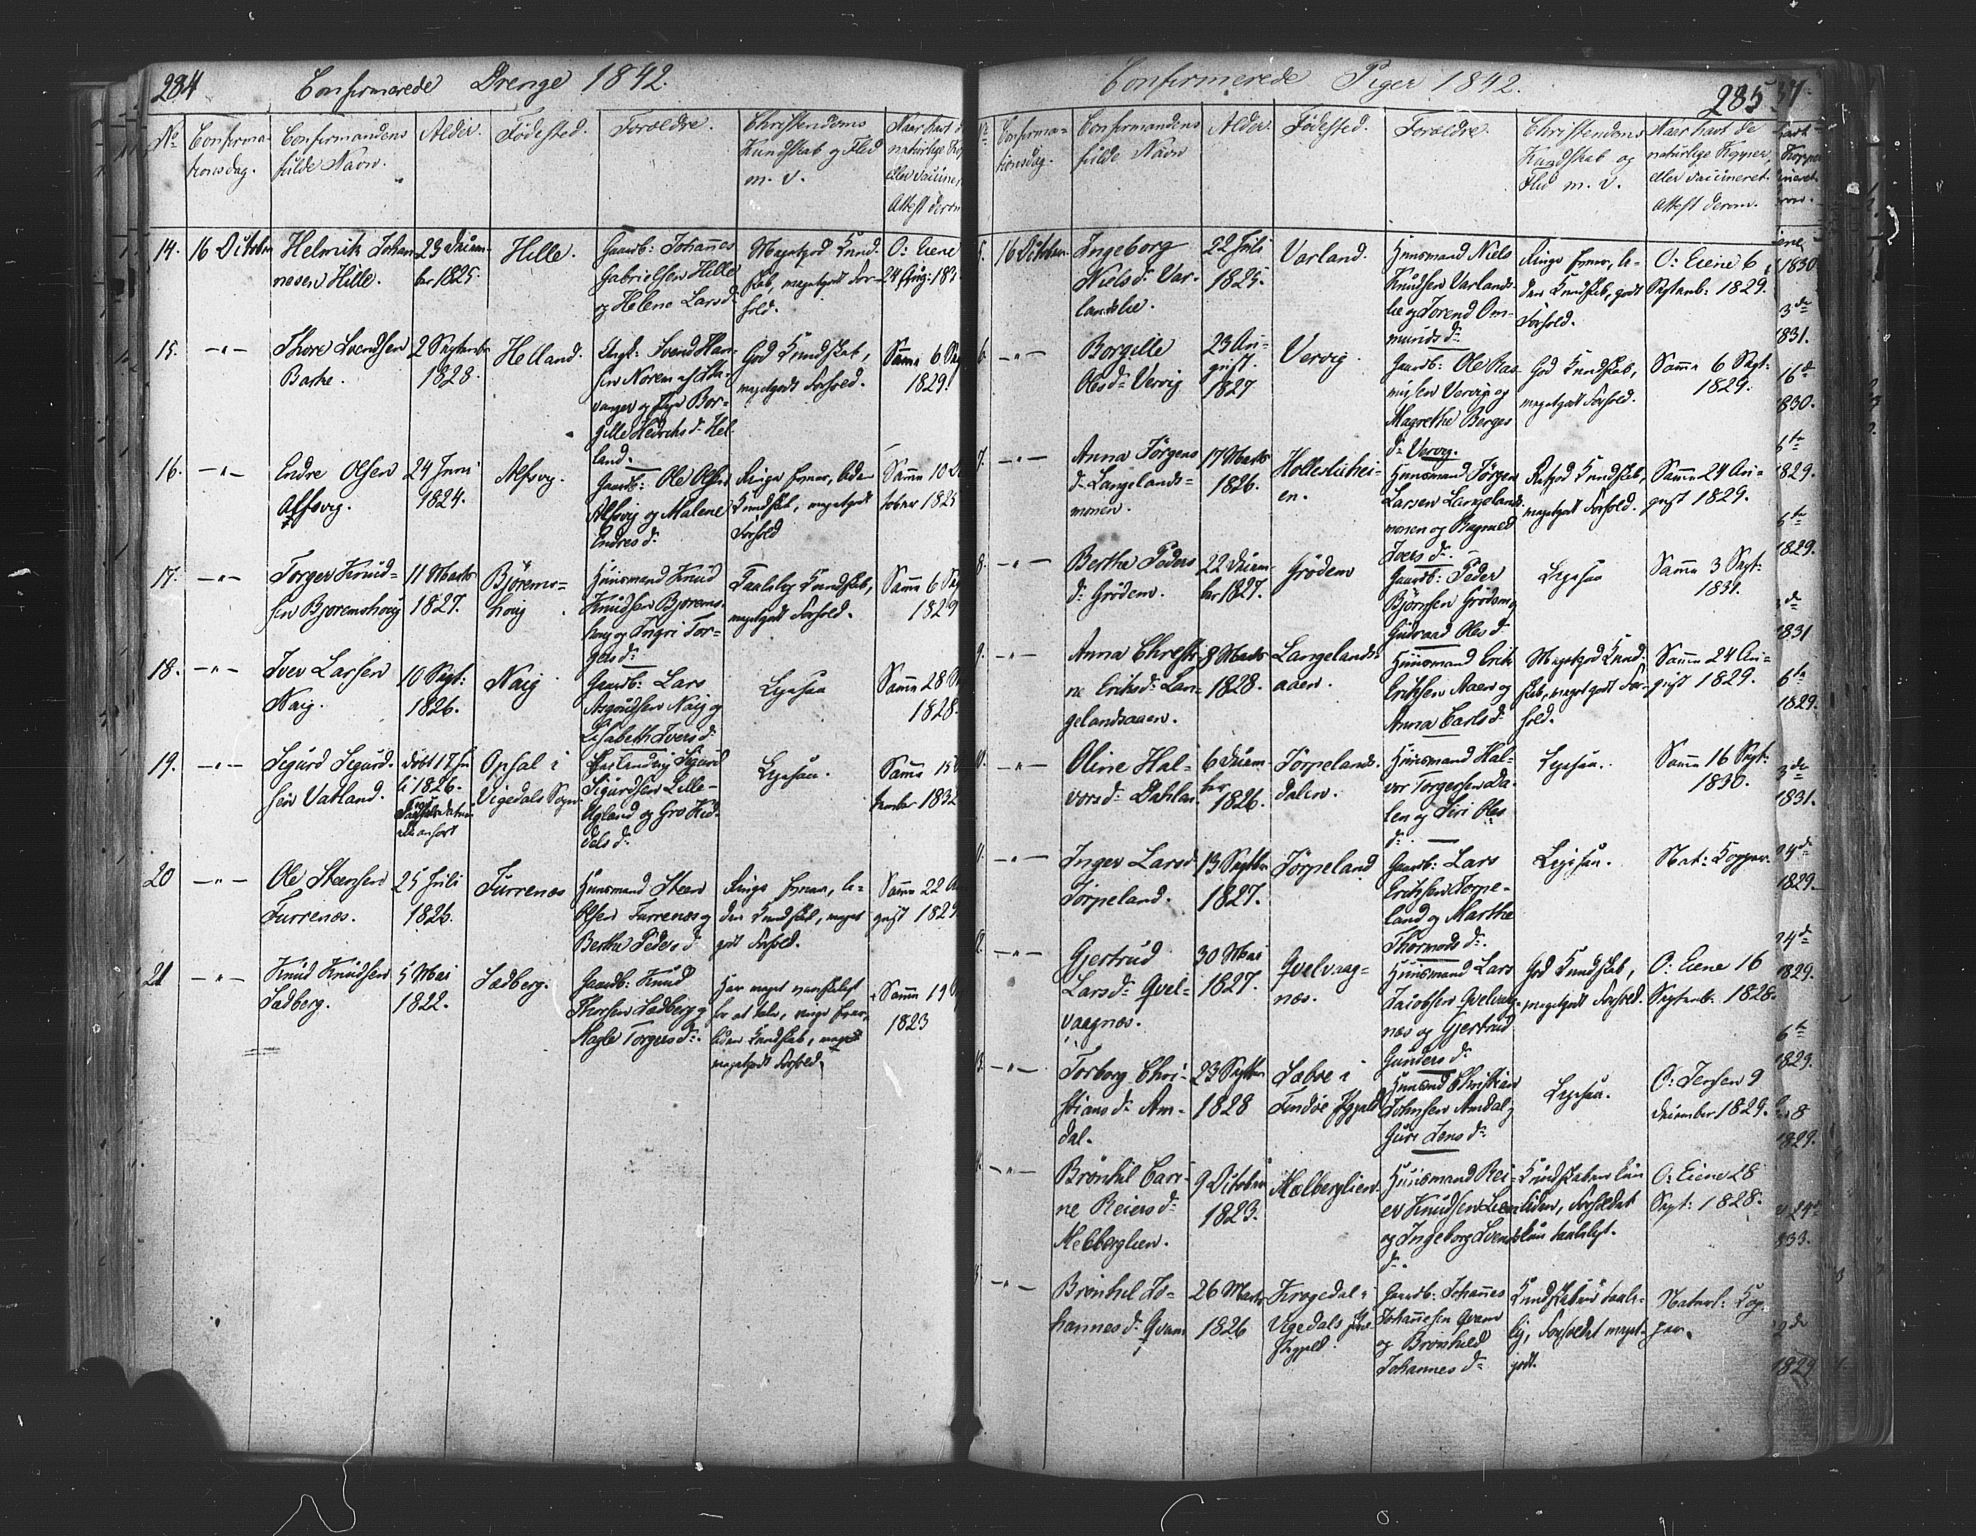 284
Confirmerede Drenge 1842.
No
Confirma-
tionsdag.
Confirmandens
fulde Navn.
Alder.
Fødested.
Forældre.
Christendoms
Kundskab og Flid
m. v.
Naar havt d
naturlige Kop
eller vaccine
Attest derom
14.
16 October
Helmrik Johan-
nesen Hille.
23 Decem-
ber 1825.
Hille.
Gaardb: Johannes
Gabrielsen Hille
og Helene Larsd.
Megetgod Kund-
skab, megetgodt For-
hold.
O: Eiene
15.
— " —
Thore Svendsen
2 Septemb.
1828.
Helland.
Svend Han-
sen Norem af Sta-
vanger og Pige Bor-
gille Hedriksd. Hel-
land.
God Kundskab,
megetgodt Forhold.
Samme 6 Sep
1829.
16.
— " —
Endre Olsen
Alfsvig.
24 Juni
1824.
Alfsvg.
Gaardb: Ole Olsen
Alfsvig og Malene
Endresd.
Ringe Evner, liden
Kundskab, megetgodt
Forhold
Samme 10 Oc
tober 1825
17.
— " —
Torger Knud-
sen Bjøremshoug
11 Marts
1827.
Bjørems-
houg
Huusmand Knud
Knudsen Bjørems-
houg og Ingri Tor-
gersd.
Taalelig Kundskab,
megetgodt Forhold.
Samme 6 Sep
1829
18.
— " —
Iver Larsen
Naig.
10 Sept:
1826.
Naig
Gaardb: Lars
Asgoudsen Naig og
Lisabeth Iversd.
Ligesaa
Samme 28 S
1828.
19.
— " —
Sigurd Sigurd-
sen Vatland.
døbt 17 Ju
li 1826.
Opsal i
Vigedals Sogn
Sigurd
Sigurdsen Lille-
og Gro Hid-
delsd.
Ligesaa.
Samme 15
1832
20
— " —
Ole Steensen
Furrenæs.
25 Juli
1826.
Furrenæs
Huusmand Steen
Olsen Furrenæs og
Berthe Pedersd.
Ringe Evner, li-
den Kundskab, meget
godt Forhold.
Samme 22 Au
gust 1829
21
— " —
Knud Knudsen
Sadberg.
5 Mai
1822.
Sadberg.
Gaardb: Knud
Thorsen Sadberg og
Magle Torgersd.
Har meget vanskeligt
for at tale, ringe Evner
liden Kundskab,
megetgodt Forhold.
Samme 19
1823
Confirmerede Piger 1842.
285
No
Confirma-
tionsdag.
Confirmandens
fulde Navn
Alder.
Fødested.
Forældre.
Christendoms
Kundskab og
Flid m. v.
Naar havt de
naturlige Kopper,
eller vaccineret.
Attest derom.
5.
16 October
Ingeborg
Nielsd. Var-
landslie.
22 Juli
1825.
Varland.
Huusmand Niels
Knudsen Varlands-
lie og Torend Om-
mundsd.
Ringe Evner, li-
den Kundskab, godt
Forhold.
O: Eiene 6
Septemb: 1829.
6.
— " —
Borgille
Olsd. Vervig
23 Au-
gust.
1827
Vervig.
Gaardb: Ole Ras-
musen Vervig og
Magrethe Berges
d. Vervig.
God Kundskab,
megetgodt Forhold.
Samme 6 Sept:
1829.
7.
— " —
Anna Jørgens
d. Langelands-
monen.
17 Marts
1826.
Hollesliehei-
en.
Huusmand Jørgen
Larsen Langelands-
monen og Ragnild
Iversd.
Retgod Kundskab,
megetgodt Forhold.
Samme 24 Au-
gust 1829.
8.
— " —
Berthe Peders
d. Grødem.
22 Decem-
ber 1827.
Grødem
Gaardb: Peder
Bjørnsen Grødem og
Gudraad Olesd.
Ligesaa
Samme 3 Sept:
1831.
9.
— " —
Anna Christi-
ne Eriksd. Lan-
gelandsaaen.
8 Marts
1828.
Langelands-
aaen.
Huusmand Erik
Eriksen Aaen og
Anna Carlsd.
Megetgod Kund-
skab, meget godt For-
hold.
Samme 24 Au-
gust 1829.
10.
— " —
Oline Hal-
vorsd. Dahlen
6 Decem-
ber
1826.
Tørpelands-
dalen.
Huusmand Hal-
vor Torgersen Da-
len og Siri Oles
d.
Ligesaa.
Samme 16 Sept:
1830.
11.
— " —
Inger Larsd.
Tørpeland.
13 Septbr
1827.
Tørpeland
Gaardb: Lars
Eriksen Tørpe-
land og Marthe
Thormodsd.
Ligesaa.
Nat: Kopper.
12.
— " —
Gjertrud
Larsd. Qvel-
vaagnæs.
30 Mai
1827.
Qvelvaag-
næs.
Huusmand Lars
Jacobsen Qvelvaag-
næs og Gjertrud
Gundersd.
God Kundskab,
megetgodt Forhold.
O: Eiene 16
Septemb: 1828.
13.
— " —
Torborg Chri-
stiansd. Am-
dal.
23 Septbr
1828
Sabøe i
Findøe Pgjeld
Huusmd Christian
Johnsen Amdal og
Guri Jensd.
Ligesaa.
O: Jersen 9
December 1829.
— " —
Brønhil Cari-
ne Reiersd.
Melberglien.
9 October
1823.
Melberglien.
Huusmand Rei-
er Knudsen Lien
og Ingeborg Svends
d.
Kundskaben kun
liden, Forholdet
kun taaleligt.
O: Eiene 28
Sept: 1828.
— " —
Brønhil Jo-
hannesd. Qvam
26 Marts
1826
Krogedal i
Vigedals
Pgjeld.
Gaardb: Johannes
Johannesen Qvam
og Brønhild
Johannesd.
Kundskaben taale-
lig, Forholdet meget
godt.
Naturl: Kop-
per.
1830
3de
1831.
16de
1830.
6te
1829.
6te
1829.
1831
6te
1829.
3de
1831.
24de
1829.
24de
1829.
6te
1829.
8
1829.
1833.
1829